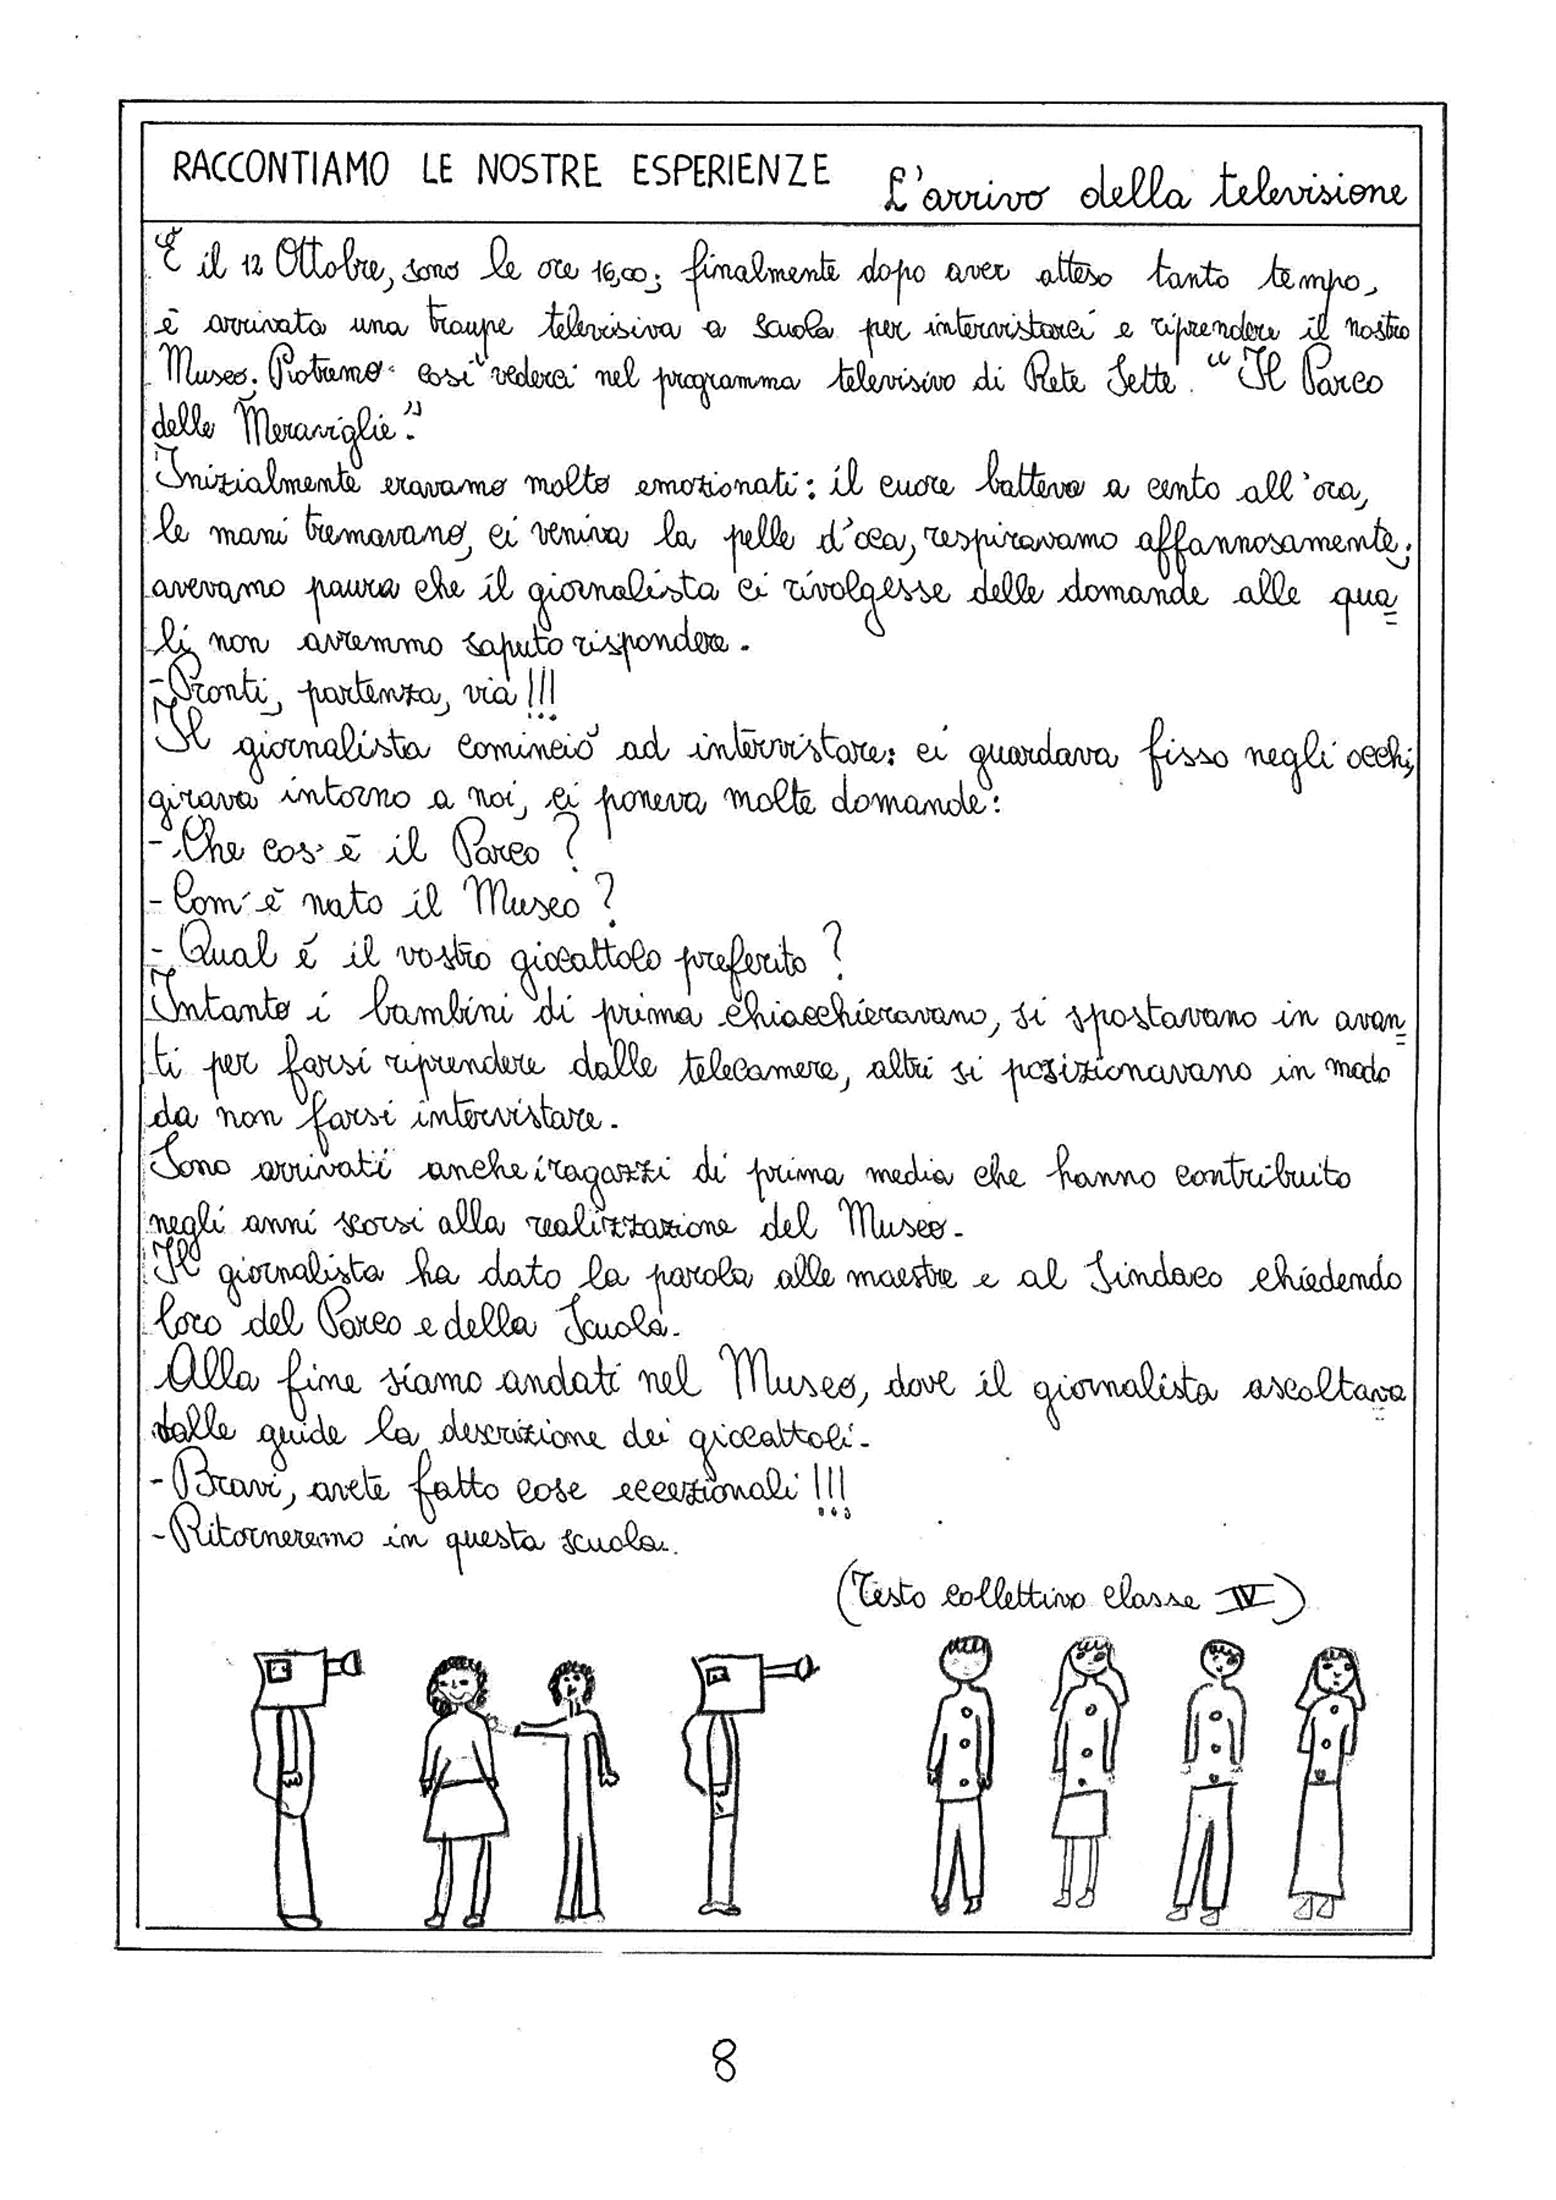 RACCONTIAMO LE NOSTRE ESPERIENZE L'arrivo della televisione
È il 12 Ottobre, sono le ore 16,00; finalmente dopo aver atteso tanto tempo,
è arrivata una troupe televisiva a scuola per intervistarci e riprendere il nostro
Museo. Potremo così vederci nel programma televisivo di Rete Sette "Il Parco
delle Meraviglie".
Inizialmente eravamo molto emozionati: il cuore batteva a cento all'ora,
le mani tremavano, ci veniva la pelle d'oca, respiravamo affannosamente;
avevamo paura che il giornalista ci rivolgesse delle domande alle qua=
li non avremmo saputo rispondere.
-Pronti, partenza, via!!!
Il giornalista cominciò ad intervistare: ci guardava fisso negli occhi,
girava intorno a noi, ci poneva molte domande:
- Che cos'è il Parco?
- Com'è nato il Museo?
- Qual è il vostro giocattolo preferito?
Intanto i bambini di prima chiacchieravano, si spostavano in avan=
ti per farsi riprendere dalle telecamere, altri si posizionavano in modo
da non farsi intervistare.
Sono arrivati anche i ragazzi di prima media che hanno contribuito
negli anni scorsi alla realizzazione del Museo.
Il giornalista ha dato la parola alle maestre e al Sindaco chiedendo
loro del Parco e della Scuola.
Alla fine siamo andati nel Museo, dove il giornalista ascoltava
dalle guide la descrizione dei giocattoli.
- Bravi, avete fatto cose eccezionali!!!
- Ritorneremo in questa scuola.
(Testo collettivo classe IV)
8